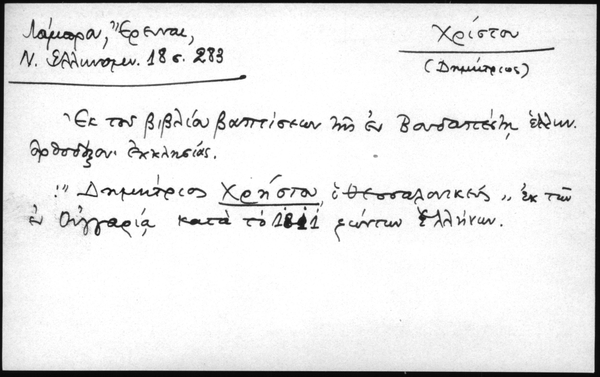 Λάμπρου, Ἔρευναι,
Ν. Ἑλληνομν. 18 σ. 283
Χρίστου
(Δημήτριος)
Ἐκ τοῦ βιβλίου βαπτίσεων τῆς ἐν Βουδαπέστῃ ἑλλην.
Ὀρθοδόξου Ἐκκλησίας.
"Δημήτριος Χρήστου, ὁ Θεσσαλονικεύς" ἐκ τῶν
ἐν Οὑγγαρίᾳ κατὰ τὸ ζώντων Ἑλλήνων.